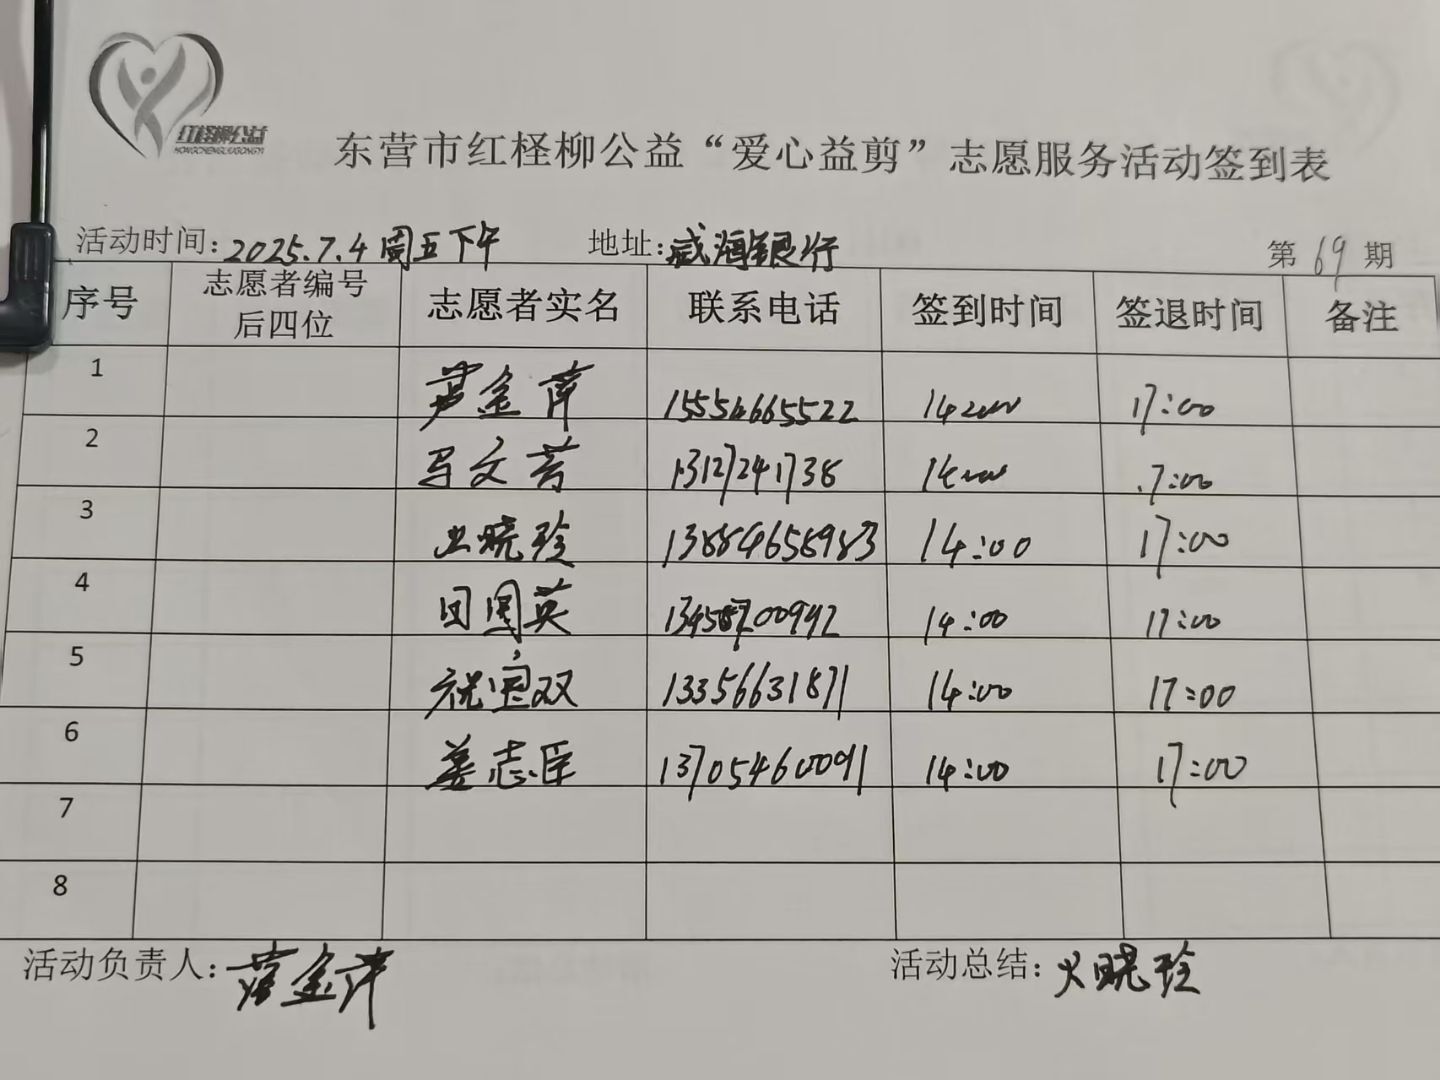 红柽柳公益
HONGCHENGLIUGONGYI
东营市红柽柳公益“爱心益剪”志愿服务活动签到表
活动时间：2025.7.4 周五下午 地址：威海银行 第 69 期
序号 志愿者编号后四位 志愿者实名 联系电话 签到时间 签退时间 备注
1 金萍 15554665522 14 17:00
2 马文芳 13127241738 14 17:00
3 晓玲 13884658983 14:00 17:00
4 田国英 14:00 17:00
5 祝宝双 13356631871 14:00 17:00
6 姜志臣 13705460091 14:00 17:00
7
8
活动负责人：金萍 活动总结：晓玲